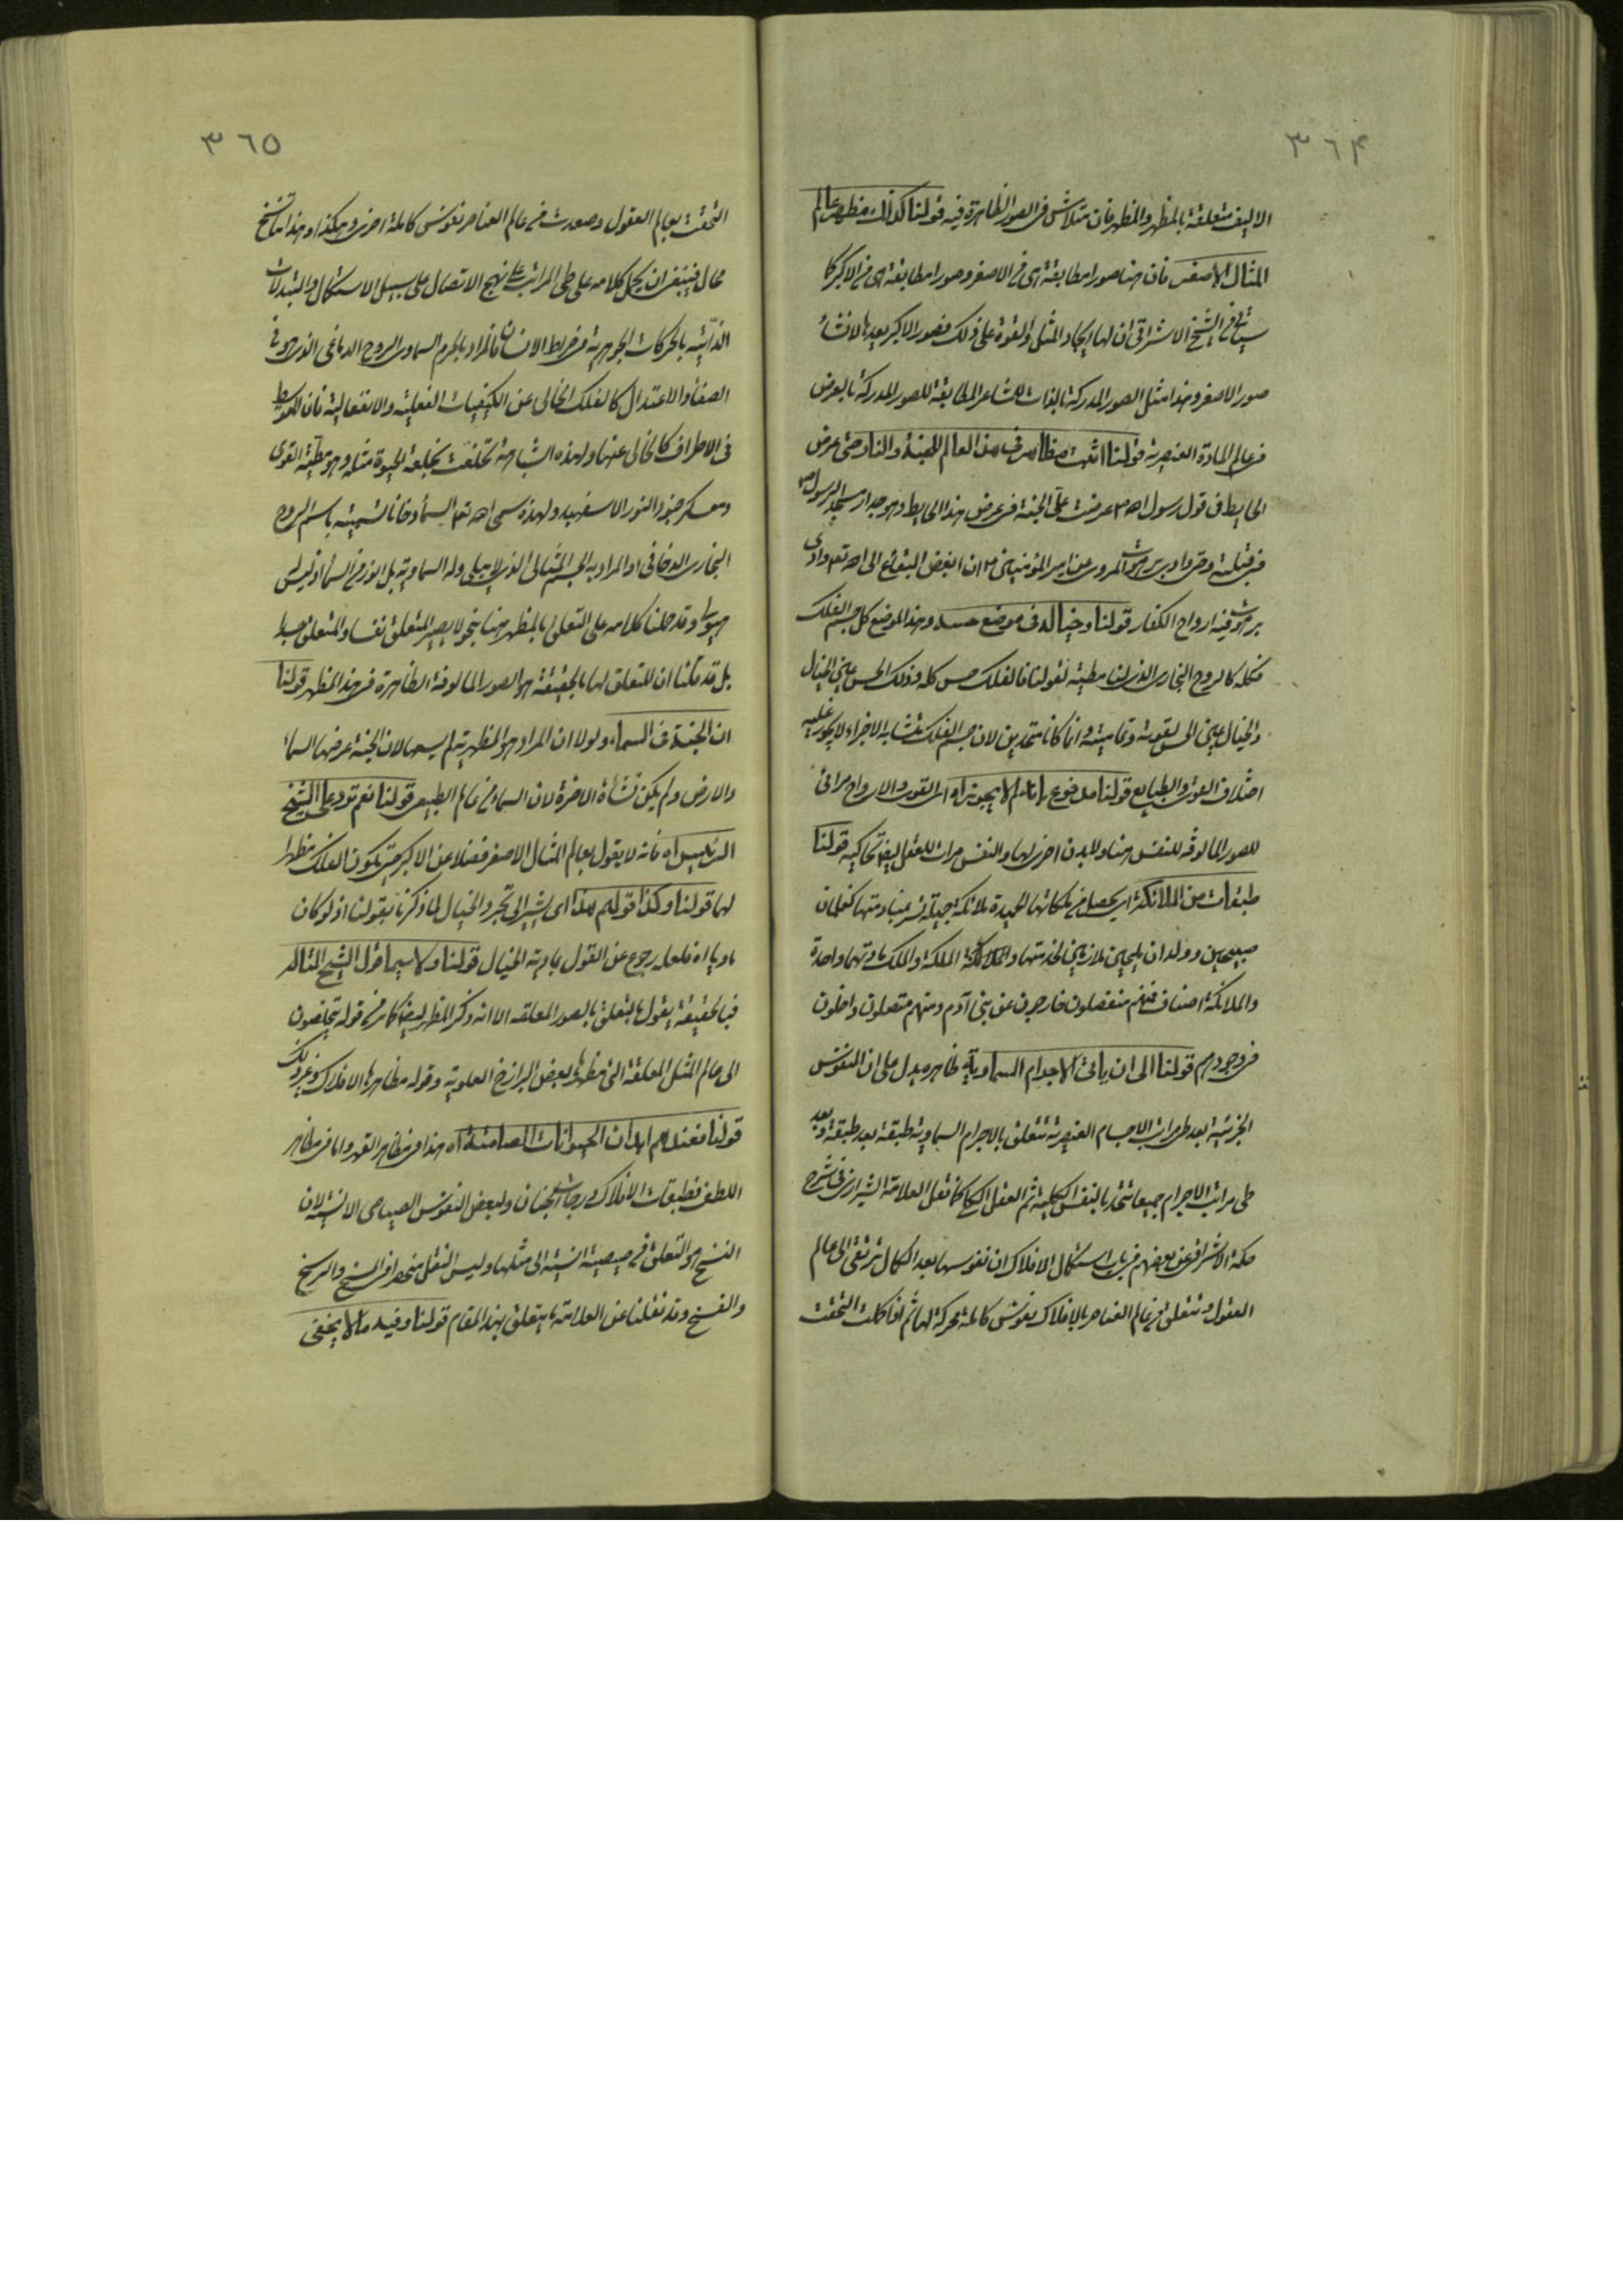 ٣٦٤
الاليف متعلقة بالمظهر والمظهر فان متلاش فى الصور الظاهرة فيه قولنا كذلك مظهر عالم
المثال الاصغر فان هنا صورا مطابقة اى فى الاصغر وصورا مطابقة اى فى الاكبر كما
سيأتى فى الشيخ الاشراقى ان لها ايجاد المثل والقوة على ذلك فصور الاكبر بعد الانشاء
صور الاصغر وهذا مثل الصور المدركة بالذات للمشاعر المطابقة للصور المدركة بالعرض
فى عالم المادة العنصرية قولنا اثبت مظاهر فى هذا العالم للجنة والنار حتى عرض
الحايط فى قول رسول الله عرضت علىّ الجنة فى عرض هذا الحايط وهو جدار مسجد الرسول
فى قبلته وحتى وادى برهوت المروى عن امير المؤمنين ان ابغض البقاع الى الله تعه وادى
برهوت فيه ارواح الكفار قولنا وخياله فى موضع حسه وهذا الموضع كل جسم الفلك
فكله كالروح البخارى الذى لنا مطية لقولنا فالفلك حس كله وذلك الحس عين الخيال
والخيال عين الحس لقوته وتماميته وانما كانا متحدين لان جسم الفلك متشابه الاجزاء لا يجوز عليه
اختلاف القوى والطبايع قولنا مدفوع بانا لا يجوز اه اى القوى والارواح مرائى
للصور المالوفة للنفس هنا ولا بدن اخرى لها والنفس مرات للعقل ايضا تحاكيه قولنا
طبقات من الملائكة اى يحصل فى ملكاتها الحميدة ملائكة جميلة كغلمان
صبيحين وولدان مليحين ملازمين لخدمتها والملائكة الملكة والملك مادتهما واحدة
والملائكة اصناف فمنهم منفصلون خارجون عن بنى آدم ومنهم متصلون داخلون
فى وجودهم قولنا الى ان ياتى الاجرام السماوية ظاهره يدل على ان النفوس
الجزئية بعد طى مراتب الاجسام العنصرية تتعلق بالاجرام السماوية طبقة بعد طبقة وبعد
طى مراتب الاجرام جميعا تتحد بالنفس الكلية ثم العقل الكلى كما نقل العلامة الشيرازى فى شرح
حكمة الاشراق عن بعضهم فى باب استكمال الافلاك ان نفوسها بعد الكمال ترتقى الى عالم
العقول وتتعلق فى عالم العناصر بالافلاك نفوس كاملة محركة لها ثم اذا كملت التحقت
٣٦٥
التحقت بعالم العقول وصورت فى عالم العناصر نفوس كاملة اخرى وهكذا وهذا تناسخ
محال فينبغى ان يحمل كلامه على طى المراتب على نهج الاتصال على سبيل الاستكمال والتبدلات
الذاتية بالحركات الجوهرية فى صراط الانسان فالمراد بالجرم السماوى الروح الدماغى الذى هو فى
الصفاء والاعتدال كالفلك الخالى عن الكيفيات الفعلية والانفعالية فان المتوسط
فى الاطراف كالخالى عنها ولهذه المشابهة تخلعت بخلعة الحيوة مثله وهو مطية القوى
ومعسكر جنود النور الاسفهبد ولهذه سمى الله تعه السماء دخانا تسميته باسم الروح
البخارى الدخانى او المراد به الجسم المثالى الذى لا يبلى وله السماوية بل الذى فى السماء اذ ليس
هيولى وقد حملنا كلامه على التعلق بالمظهر هنا بنحو لا يصير المتعلق نفسا والمتعلق جسدا
بل قد قلنا ان المتعلق لها بالحقيقة هو الصور المالوفة الظاهرة فى هذا المظهر قولنا
ان الجنة فى السماء ولولا ان المراد هو المظهرية لم يسعها لان الجنة عرضها السماء
والارض ولم يكن نشأة الاخرة لان السماء فى عالم الطبيعى قولنا نعم تورد على الشيخ
الرئيس اه فانه لا يقول بعالم المثال الاصغر فضلا عن الاكبر حتى يكون الفلك مظهرا
لها قولنا وكذا قولهم هذا اى يشير الى تجرد الخيال لما ذكرنا بقولنا اذ لو كان
ماديا اه فلعله رجوع عن القول بمادية الخيال قولنا ولا سيما مثل الشيخ المتاله
فبالحقيقة يقول بالتعلق بالصور المعلقه الا انه ذكر المظهر ايضا كما مر فى قوله يتخلصون
الى عالم المثل المعلقة التى مظهرها بعض البرازخ العلوية وقوله مظاهرها الافلاك وغير ذلك
قولنا فعندهم ابدان الحيوانات الصامتة اه هذا فى مظاهر القهر واما فى مظاهر
اللطف فطبقات الافلاك درجات الجنان ولبعض النفوس الصياصى الانسية لان
النسخ هو التعلق فى صيصية انسية الى مثلها وليس النقل منحصرا فى المسخ والرسخ
والفسخ وقد نقلنا عن العلامة ما يتعلق بهذا المقام قولنا وفيه ما لا يخفى